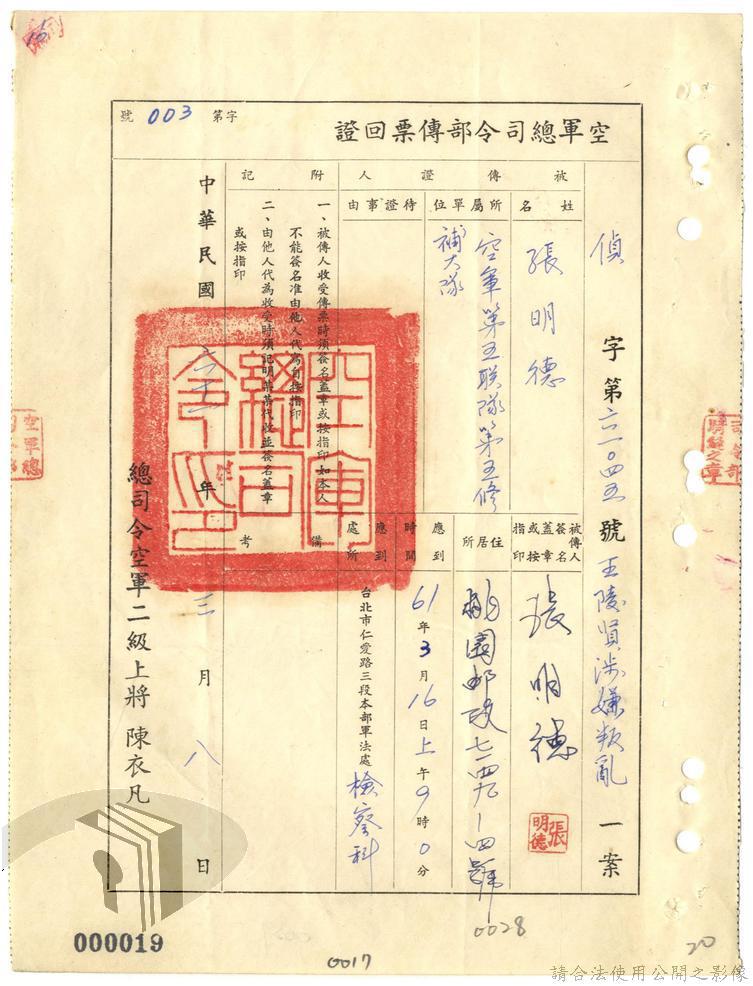 空軍總司令部傳票回證
字第 003 號
偵字第六一〇四五號王陵賢涉嫌叛亂一案
被傳證人
姓名
張明德
所屬單位
空軍第五联隊第五修
補大隊
待證事由
被傳人簽名蓋章或按指印
張明德
張明德
住居所
桃園郵政七一四九一四號
應到時間
61年3月16日上午9時0分
應到處所
台北市仁愛路三段本部軍法處檢察科
備考
附記
一、被傳人收受傳票時須簽名蓋章或按指印如本人
不能簽名准由他人代寫自按指印
二、由他人代為收受時須記明某某代收並簽名蓋章
或按指印
空軍總司令印
中華民國六十一年三月八日
總司令空軍二級上將 陳衣凡
空軍總
000019
0017
0028
20
請合法使用公開之影像